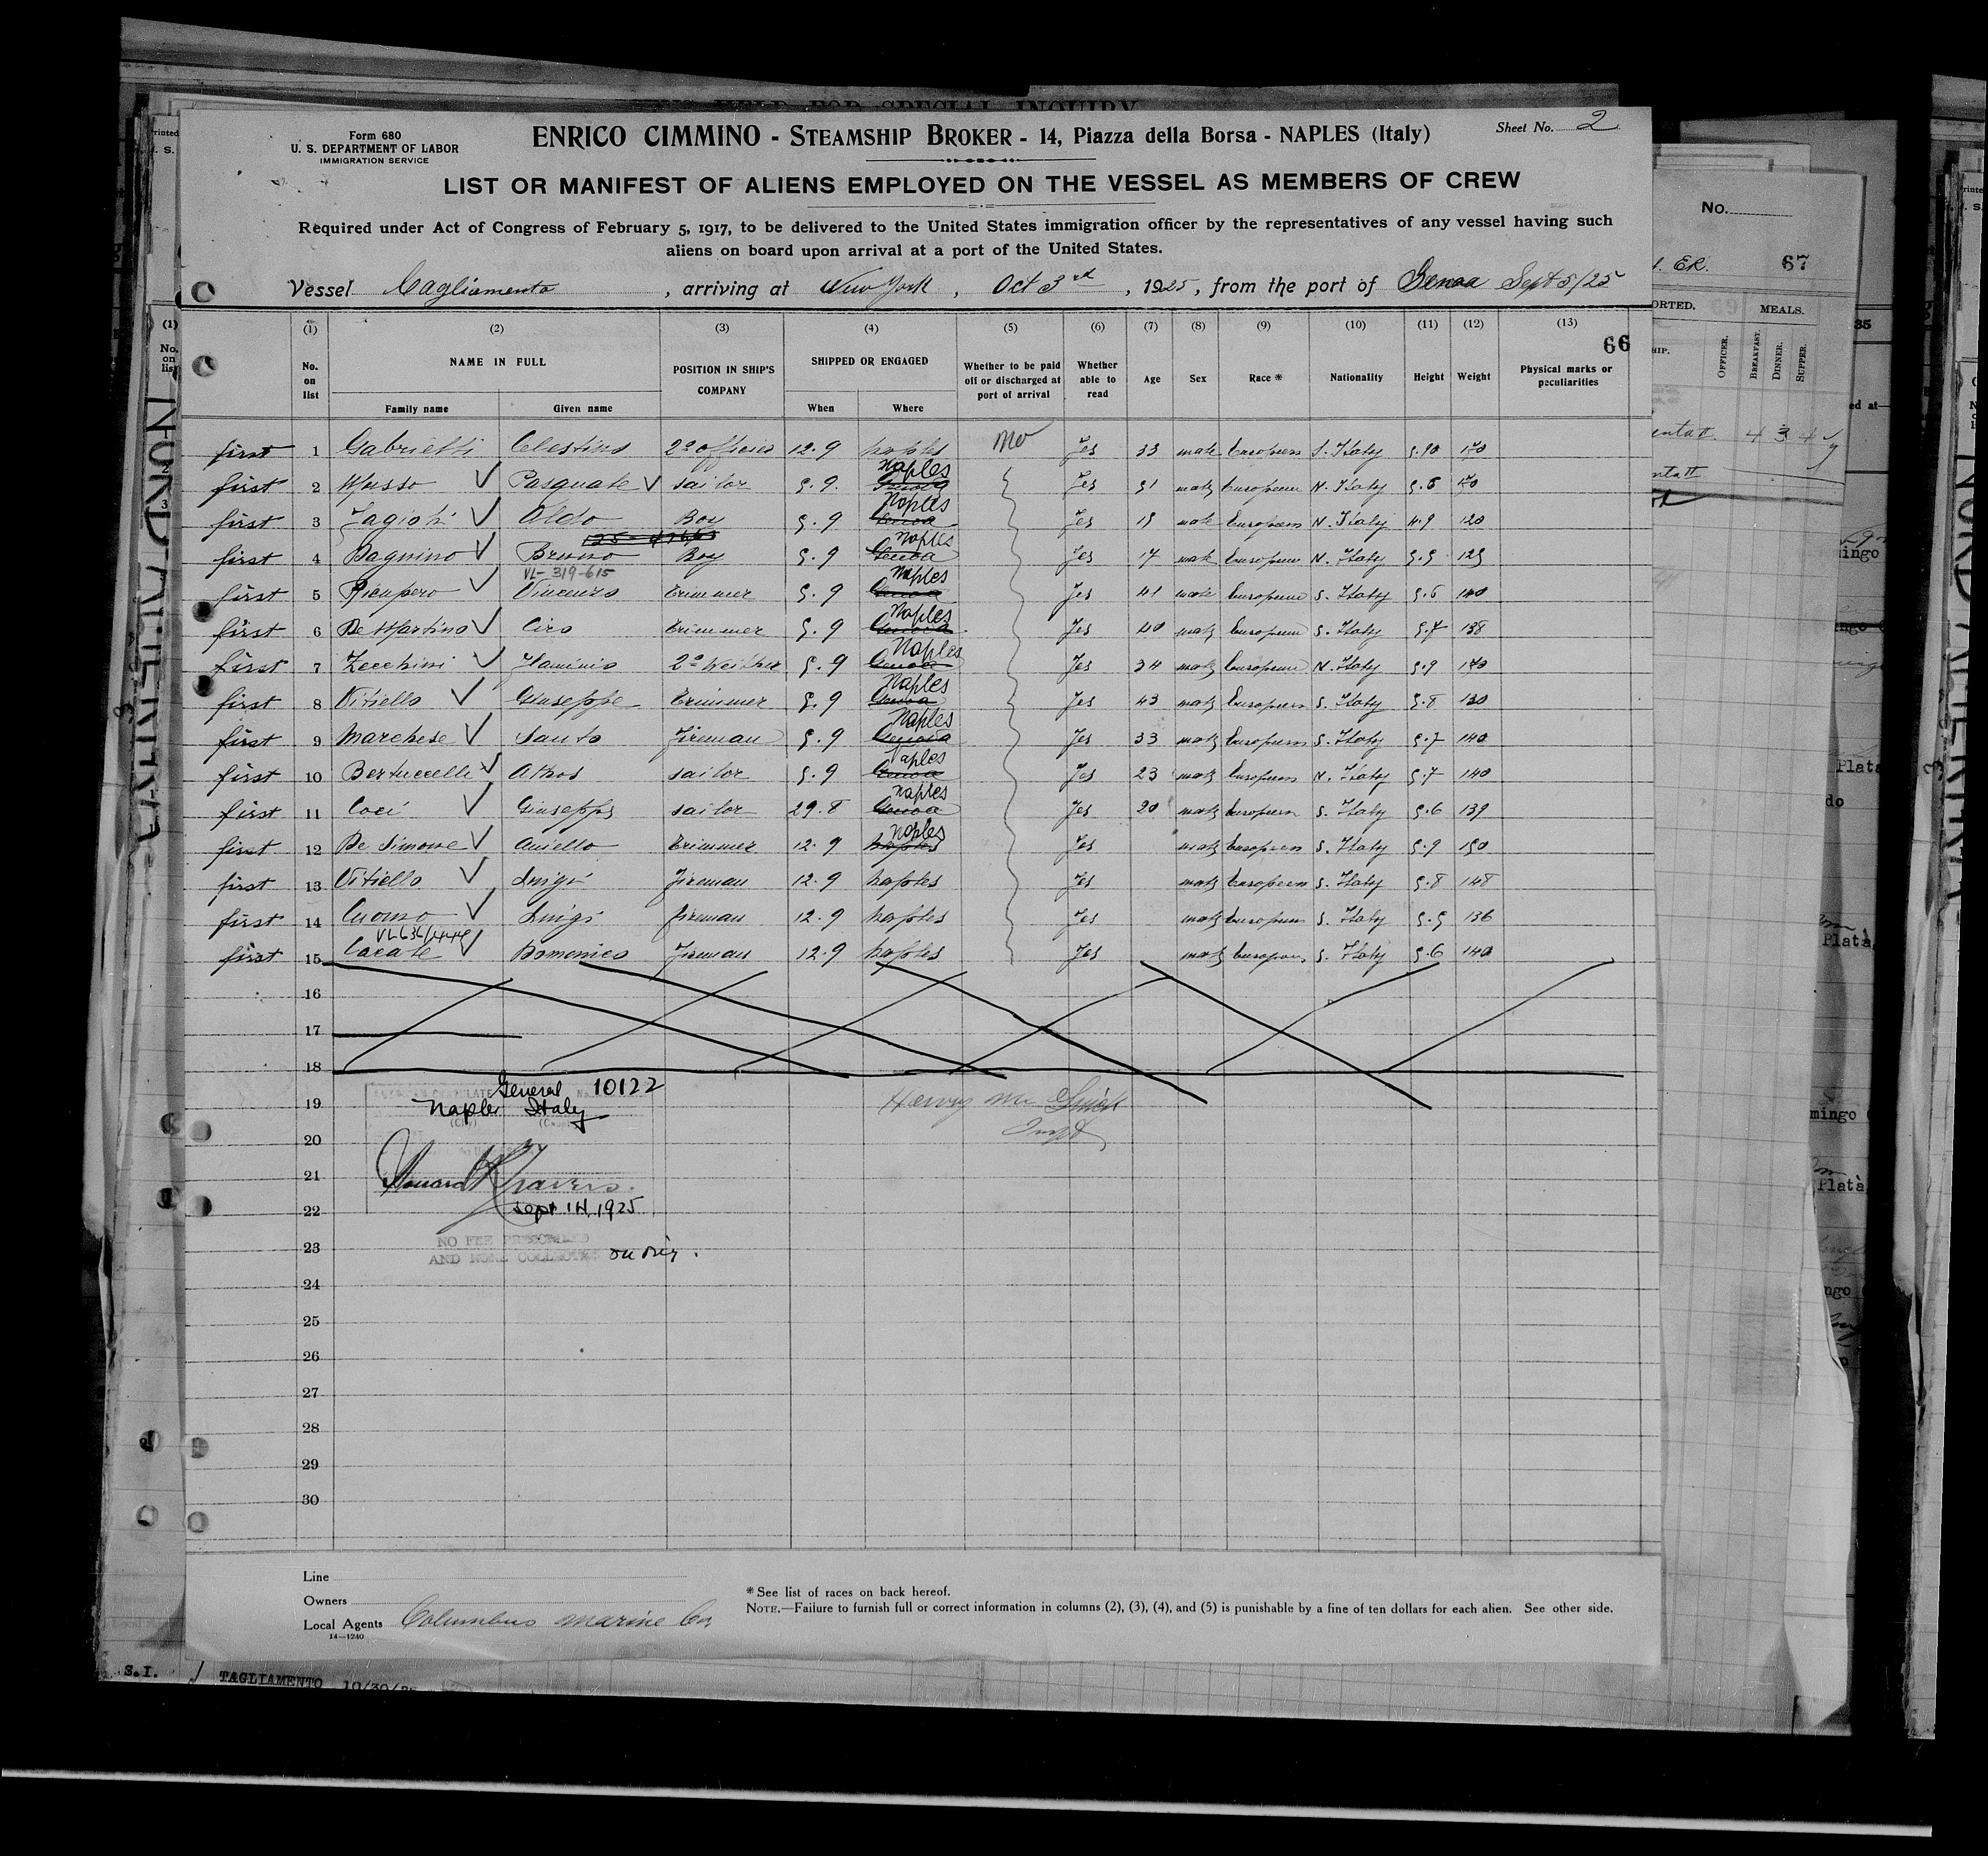 Form 680
U. S. DEPARTMENT OF LABOR
IMMIGRATION SERVICE
ENRICO CIMMINO - STEAMSHIP BROKER - 14, Piazza della Borsa - NAPLES (Italy)
Sheet No. 2
LIST OR MANIFEST OF ALIENS EMPLOYED ON THE VESSEL AS MEMBERS OF CREW
Required under Act of Congress of February 5, 1917, to be delivered to the United States immigration officer by the representatives of any vessel having such
aliens on board upon arrival at a port of the United States.
Vessel Tagliamento, arriving at New York, Oct 3rd, 1925, from the port of Genoa Sept 5/25
(1) (2) (3) (4) (5) (6) (7) (8) (9) (10) (11) (12) (13)
66
No. on list NAME IN FULL POSITION IN SHIP'S COMPANY SHIPPED OR ENGAGED Whether to be paid off or discharged at port of arrival Whether able to read Age Sex Race * Nationality Height Weight Physical marks or peculiarities
Family name Given name When Where
first 1 Gabrielli Celestino 2º officer 12.9 Naples No Yes 33 male European S. Italy 5.10 170
first 2 Russo Pasquale sailor 5.9. Genoa Naples Yes 51 male European N. Italy 5.6 170
first 3 Aldo Boy 5.9 Genoa Naples Yes 15 male European N. Italy 4.9 120
first 4 Bagnino Bruno Boy 5.9 Genoa Naples Yes 17 male European N. Italy 5.5 125
VL-319-615
first 5 Ricupero Vincenzo trimmer 5.9 Genoa Naples Yes 41 male European S. Italy 5.6 140
first 6 De Martino Ciro trimmer 5.9 Genoa Naples Yes 40 male European S. Italy 5.7 138
first 7 Zecchini Flaminio 2º 5.9 Genoa Naples Yes 34 male European N. Italy 5.9 170
first 8 Vitiello Giuseppe trimmer 5.9 Genoa Naples Yes 43 male European S. Italy 5.8 130
first 9 Marchese Santo Fireman 5.9 Genoa Naples Yes 33 male European S. Italy 5.7 140
first 10 Bertuccelli Athos sailor 5.9 Genoa Naples Yes 23 male European N. Italy 5.7 140
first 11 Coci Giuseppe sailor 29.8 Genoa Naples Yes 20 male European S. Italy 5.6 139
first 12 De Simone Aniello trimmer 12.9 Naples Naples Yes male European S. Italy 5.9 150
first 13 Vitiello Luigi Fireman 12.9 Naples Yes male European S. Italy 5.8 148
first 14 Cuomo Luigi fireman 12.9 Naples Yes male European S. Italy 5.5 136
first 15 Cacace Domenico Fireman 12.9 Naples Yes male European S. Italy 5.6 140
16
17
18
General 10122
19 Naples Italy
(City)
20
21
22 Sept 14, 1925
NO FEE PRESCRIBED
23 AND NONE COLLECTED
24
25
26
27
28
29
30
Line
Owners
Local Agents Columbus Marine Co.
14—1240
* See list of races on back hereof.
NOTE.—Failure to furnish full or correct information in columns (2), (3), (4), and (5) is punishable by a fine of ten dollars for each alien. See other side.
S.I. TAGLIAMENTO 10/30/25
No.
67
MEALS.
OFFICER. BREAKFAST. DINNER. SUPPER.